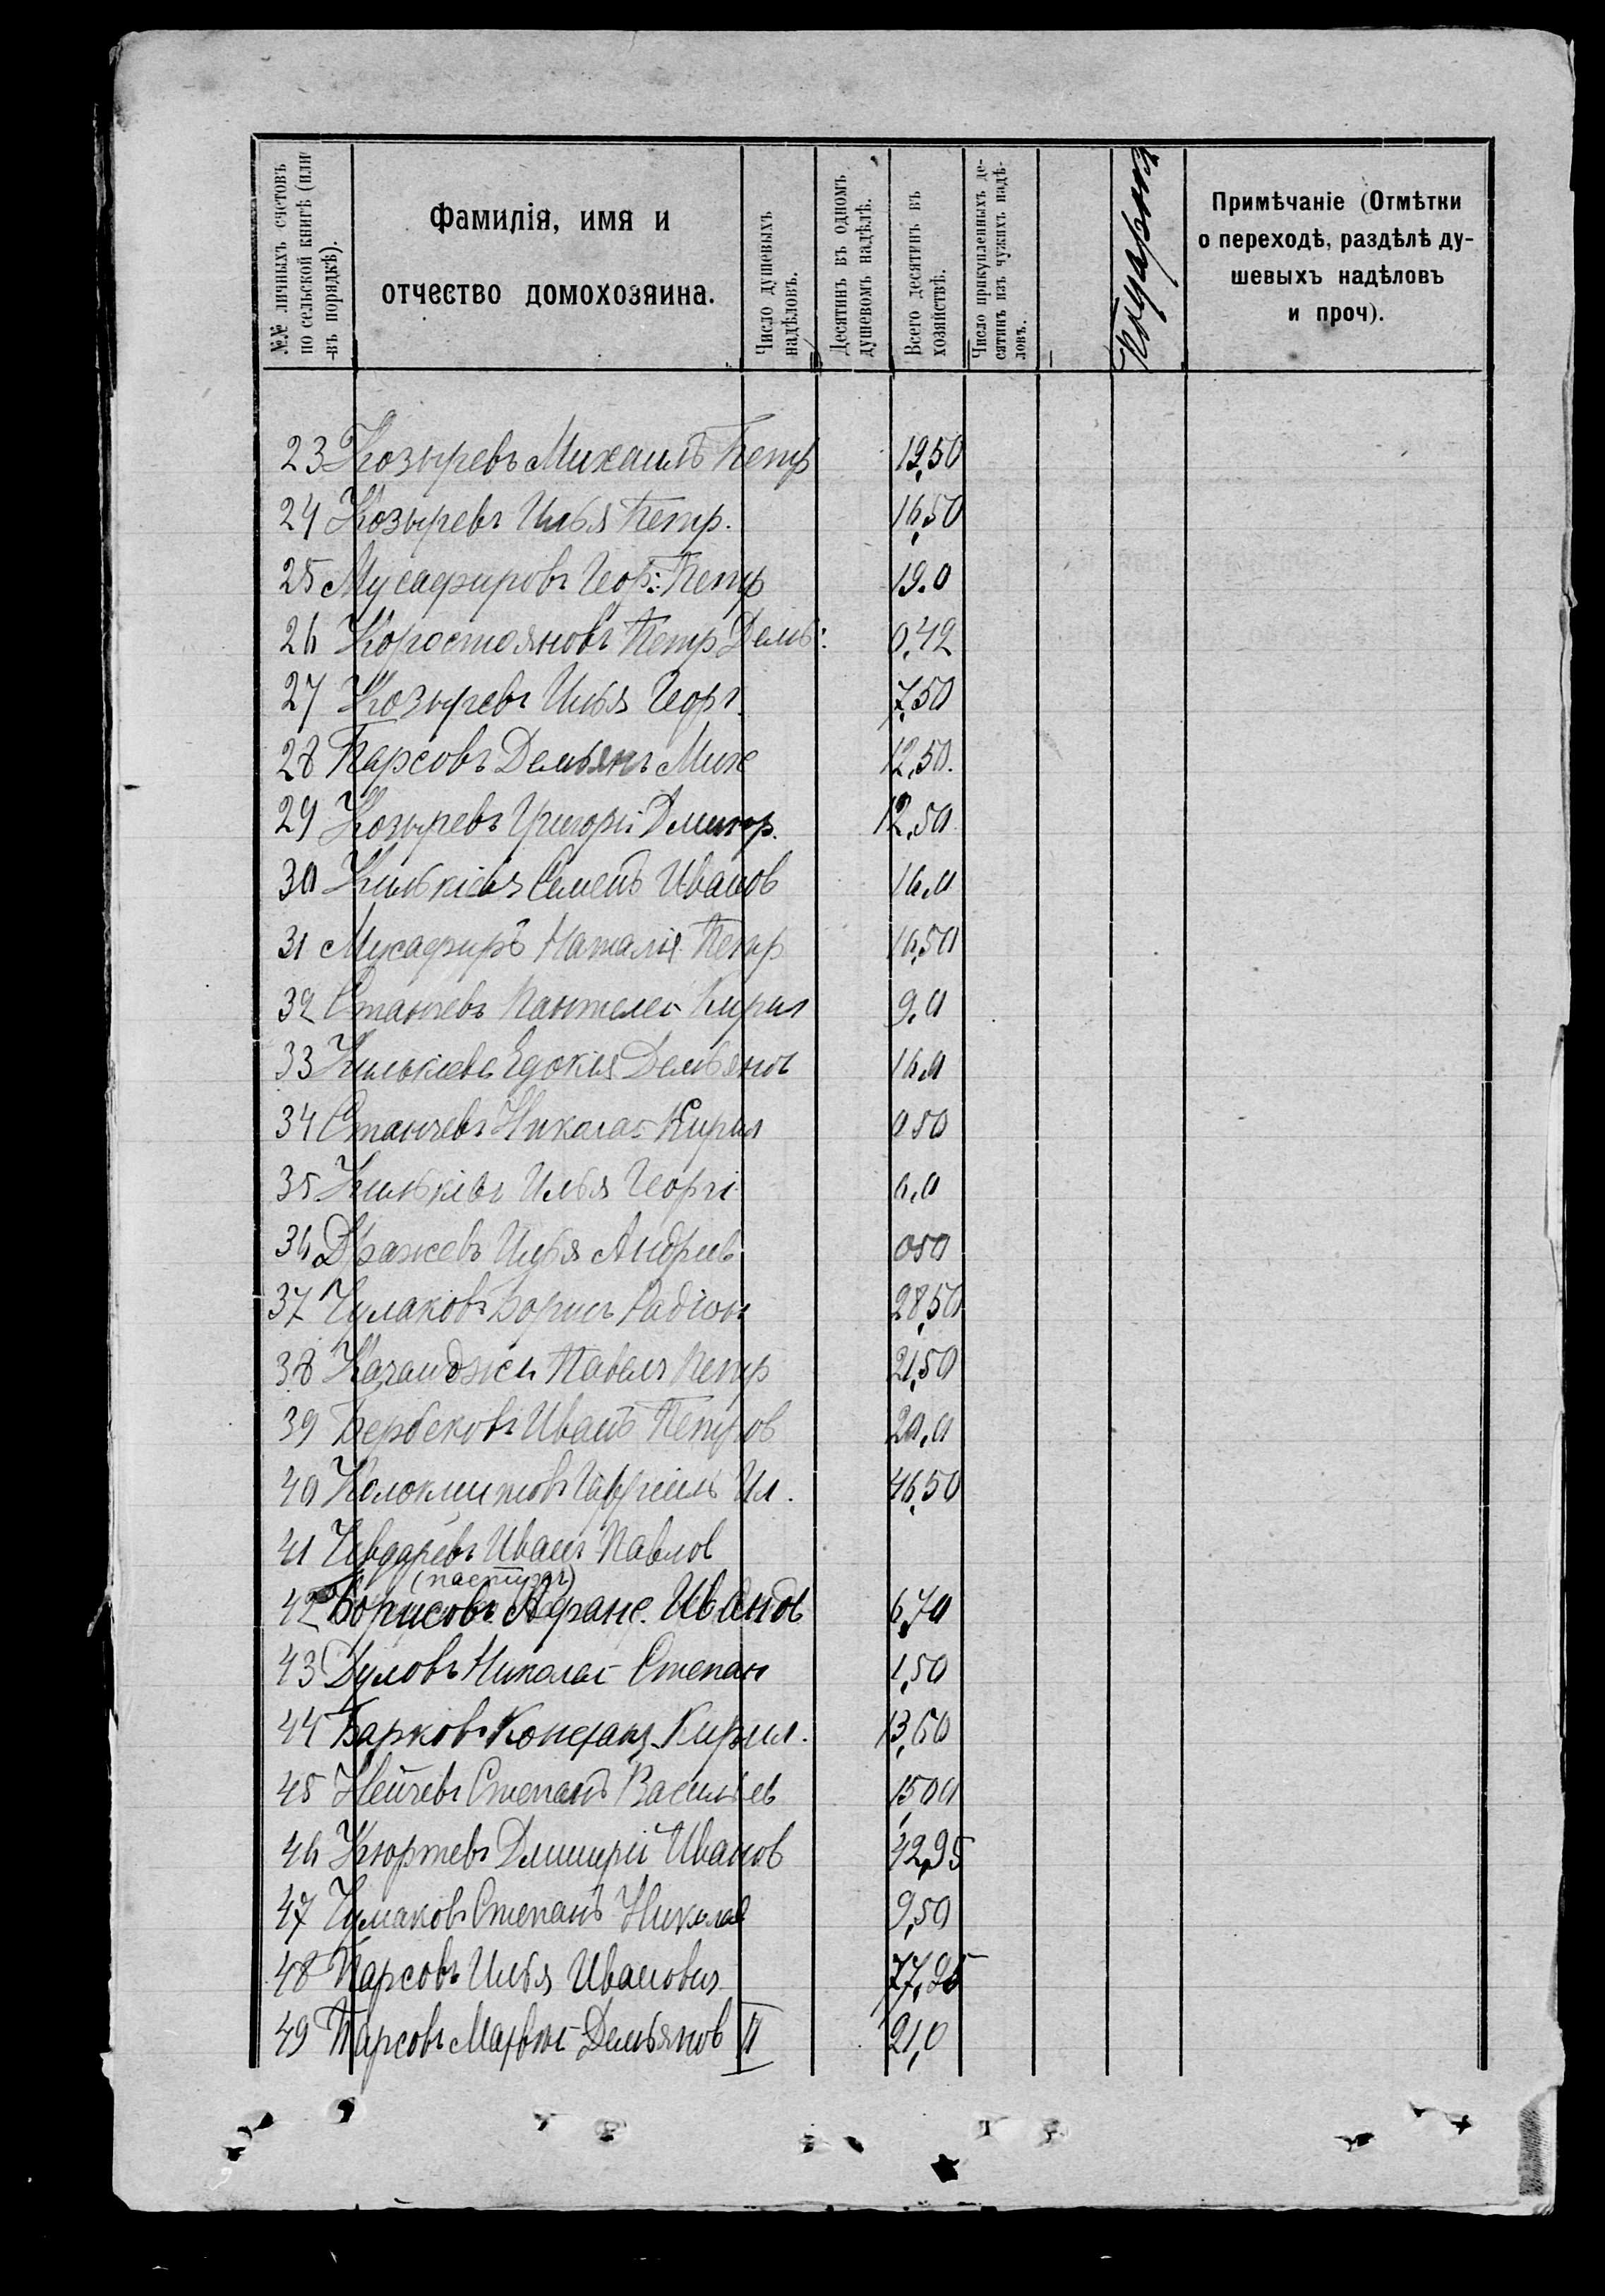 №№ личныхъ счетовъ по сельской книгѣ (или въ порядкѣ).
Фамилія, имя и отчество домохозяина.
Число душевыхъ надѣловъ.
Десятинъ въ одномъ душевомъ надѣлѣ.
Всего десятинъ въ хозяйствѣ.
Число прикупленныхъ десятинъ изъ чужихъ надѣловъ.
Примѣчаніе (Отмѣтки о переходѣ, раздѣлѣ душевыхъ надѣловъ и проч).
23 Козыревъ Михаилъ Петр 19,50
24 Козыревъ Илья Петр. 16,50
25 Мусафировъ Геор: Петр 19.0
26 Коростояновъ Петр Дем: 0,42
27 Козыревъ Илья Георг. 7,50
28 Парсовъ Демьянъ Мих 12,50.
29 Козыревъ Григорій Дмитр. 12,50
30 Кильківъ Семенъ Иванов 16,0
31 Мусафиръ Наталія Петр 16,50
32 Станчевъ Пантелей Кирил 9,0
33 Килькіева Едокия Демьянов 16,0
34 Станчевъ Николай Кирил 0 50
35 Кильківъ Илья Георгі 6,0
36 Дражевъ Илья Андріев 050
37 Чулаковъ Борисъ Радіон 28,50
38 Казанджи Павелъ Петр 21,50
39 Бербековъ Иванъ Петров 20,0
40 Гавріилъ Ил. 46,50
41 Иванъ Павлов
(пастырь)
42 Борисовъ Афанс. Иванов 6,70
43 Дуловъ Николай Степан 1,50
44 Барковъ Констант Кирил. 13,60
45 Нейчевъ Степанъ Васильев 15,00
46 Кюртевъ Дмитрій Иванов 42,95
47 Чумаковъ Степанъ Николае 9,50
48 Парсовъ Илья Иванович 77,95
49 Парсовъ Матвей Демьянов II 21,0